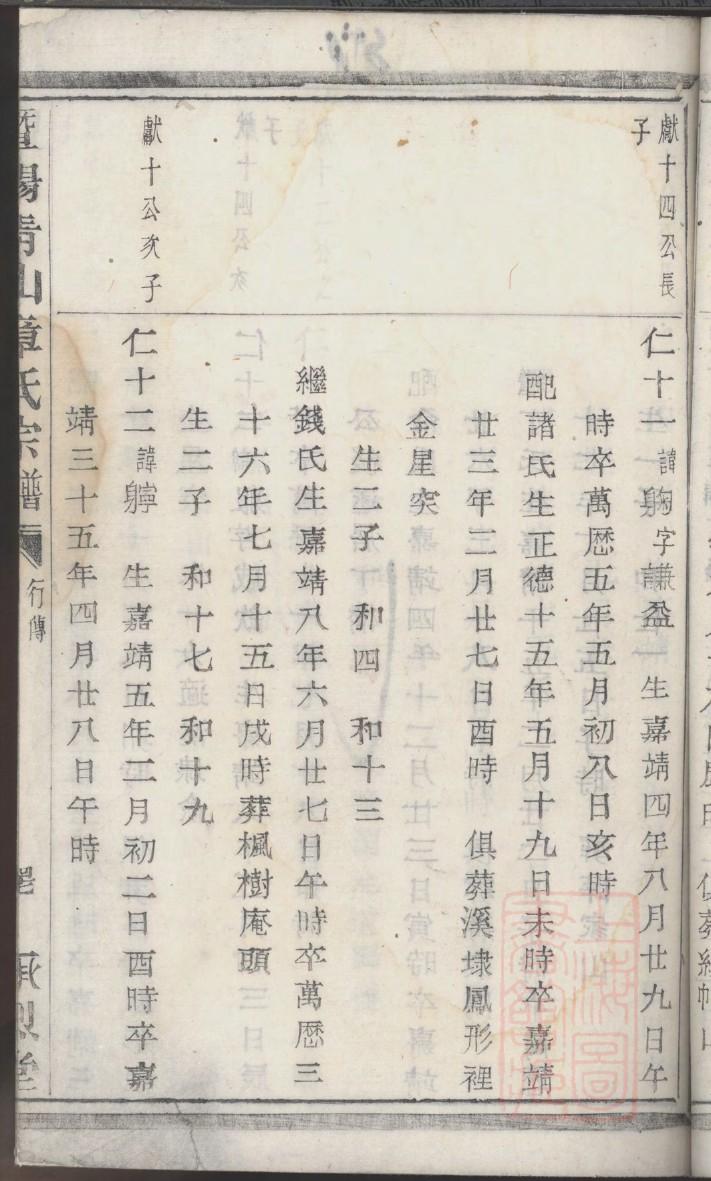 獻十四公長
子
仁十一諱躹字謙益 生嘉靖四年八月廿九日午
時卒萬厯五年五月初八日亥時
配諸氏生正德十五年五月十九日未時卒嘉靖
廿三年二月廿七日酉時 俱葬溪埭鳳形裡
金星突
公 生二子 和四 和十三
繼錢氏生嘉靖八年六月廿七日午時卒萬厯三
十六年七月十五日戌時葬楓樹庵頭
生二子 和十七 和十九
獻十公次子
仁十二諱 生嘉靖五年二月初二日酉時卒嘉
靖三十五年四月廿八日午時
暨陽青山章氏宗譜 行傳 承烈堂